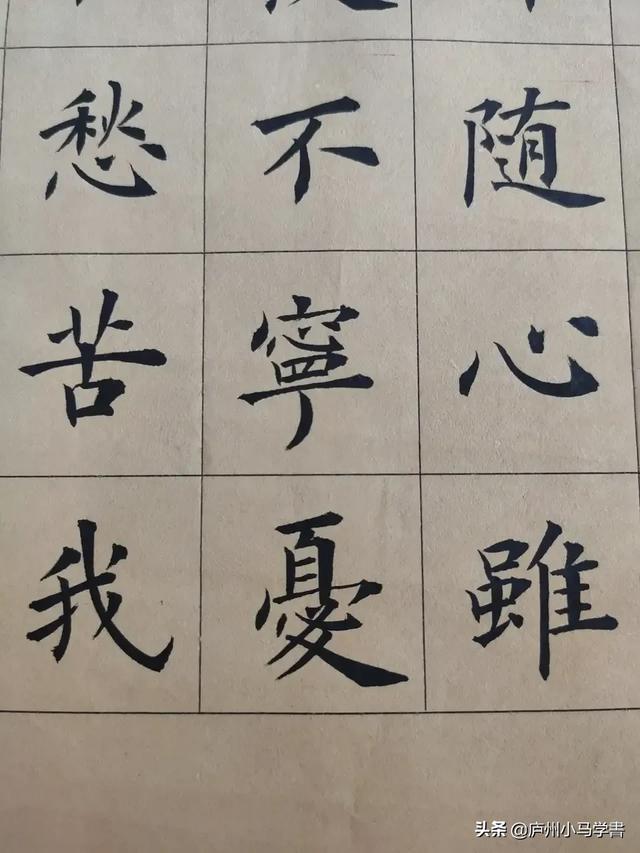 随心雖
不寧憂
愁苦我
头条 @庐州小马学書